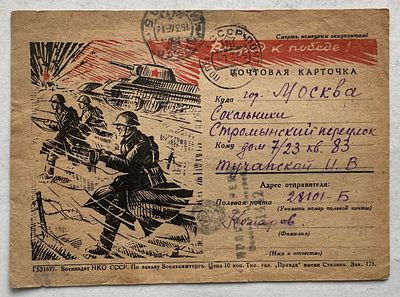 Смерть немецким оккупантам!
Вперед к победе!
ПОЧТОВАЯ КАРТОЧКА
Куда гор. Москва
Сокольники
Стромынский переулок
Кому дом 7/23 кв. 83
Тучанской И. В
Адрес отправителя:
Полевая почта 28101-Б
(Указать номер полевой почты)
Комаров
(Фамилия)
(Имя и отчество)
Г531677. Воениздат НКО СССР. По заказу Военвоенторга. Цена 10 коп. Тип. газ. „Правда“ имени Сталина. Зак. 173.